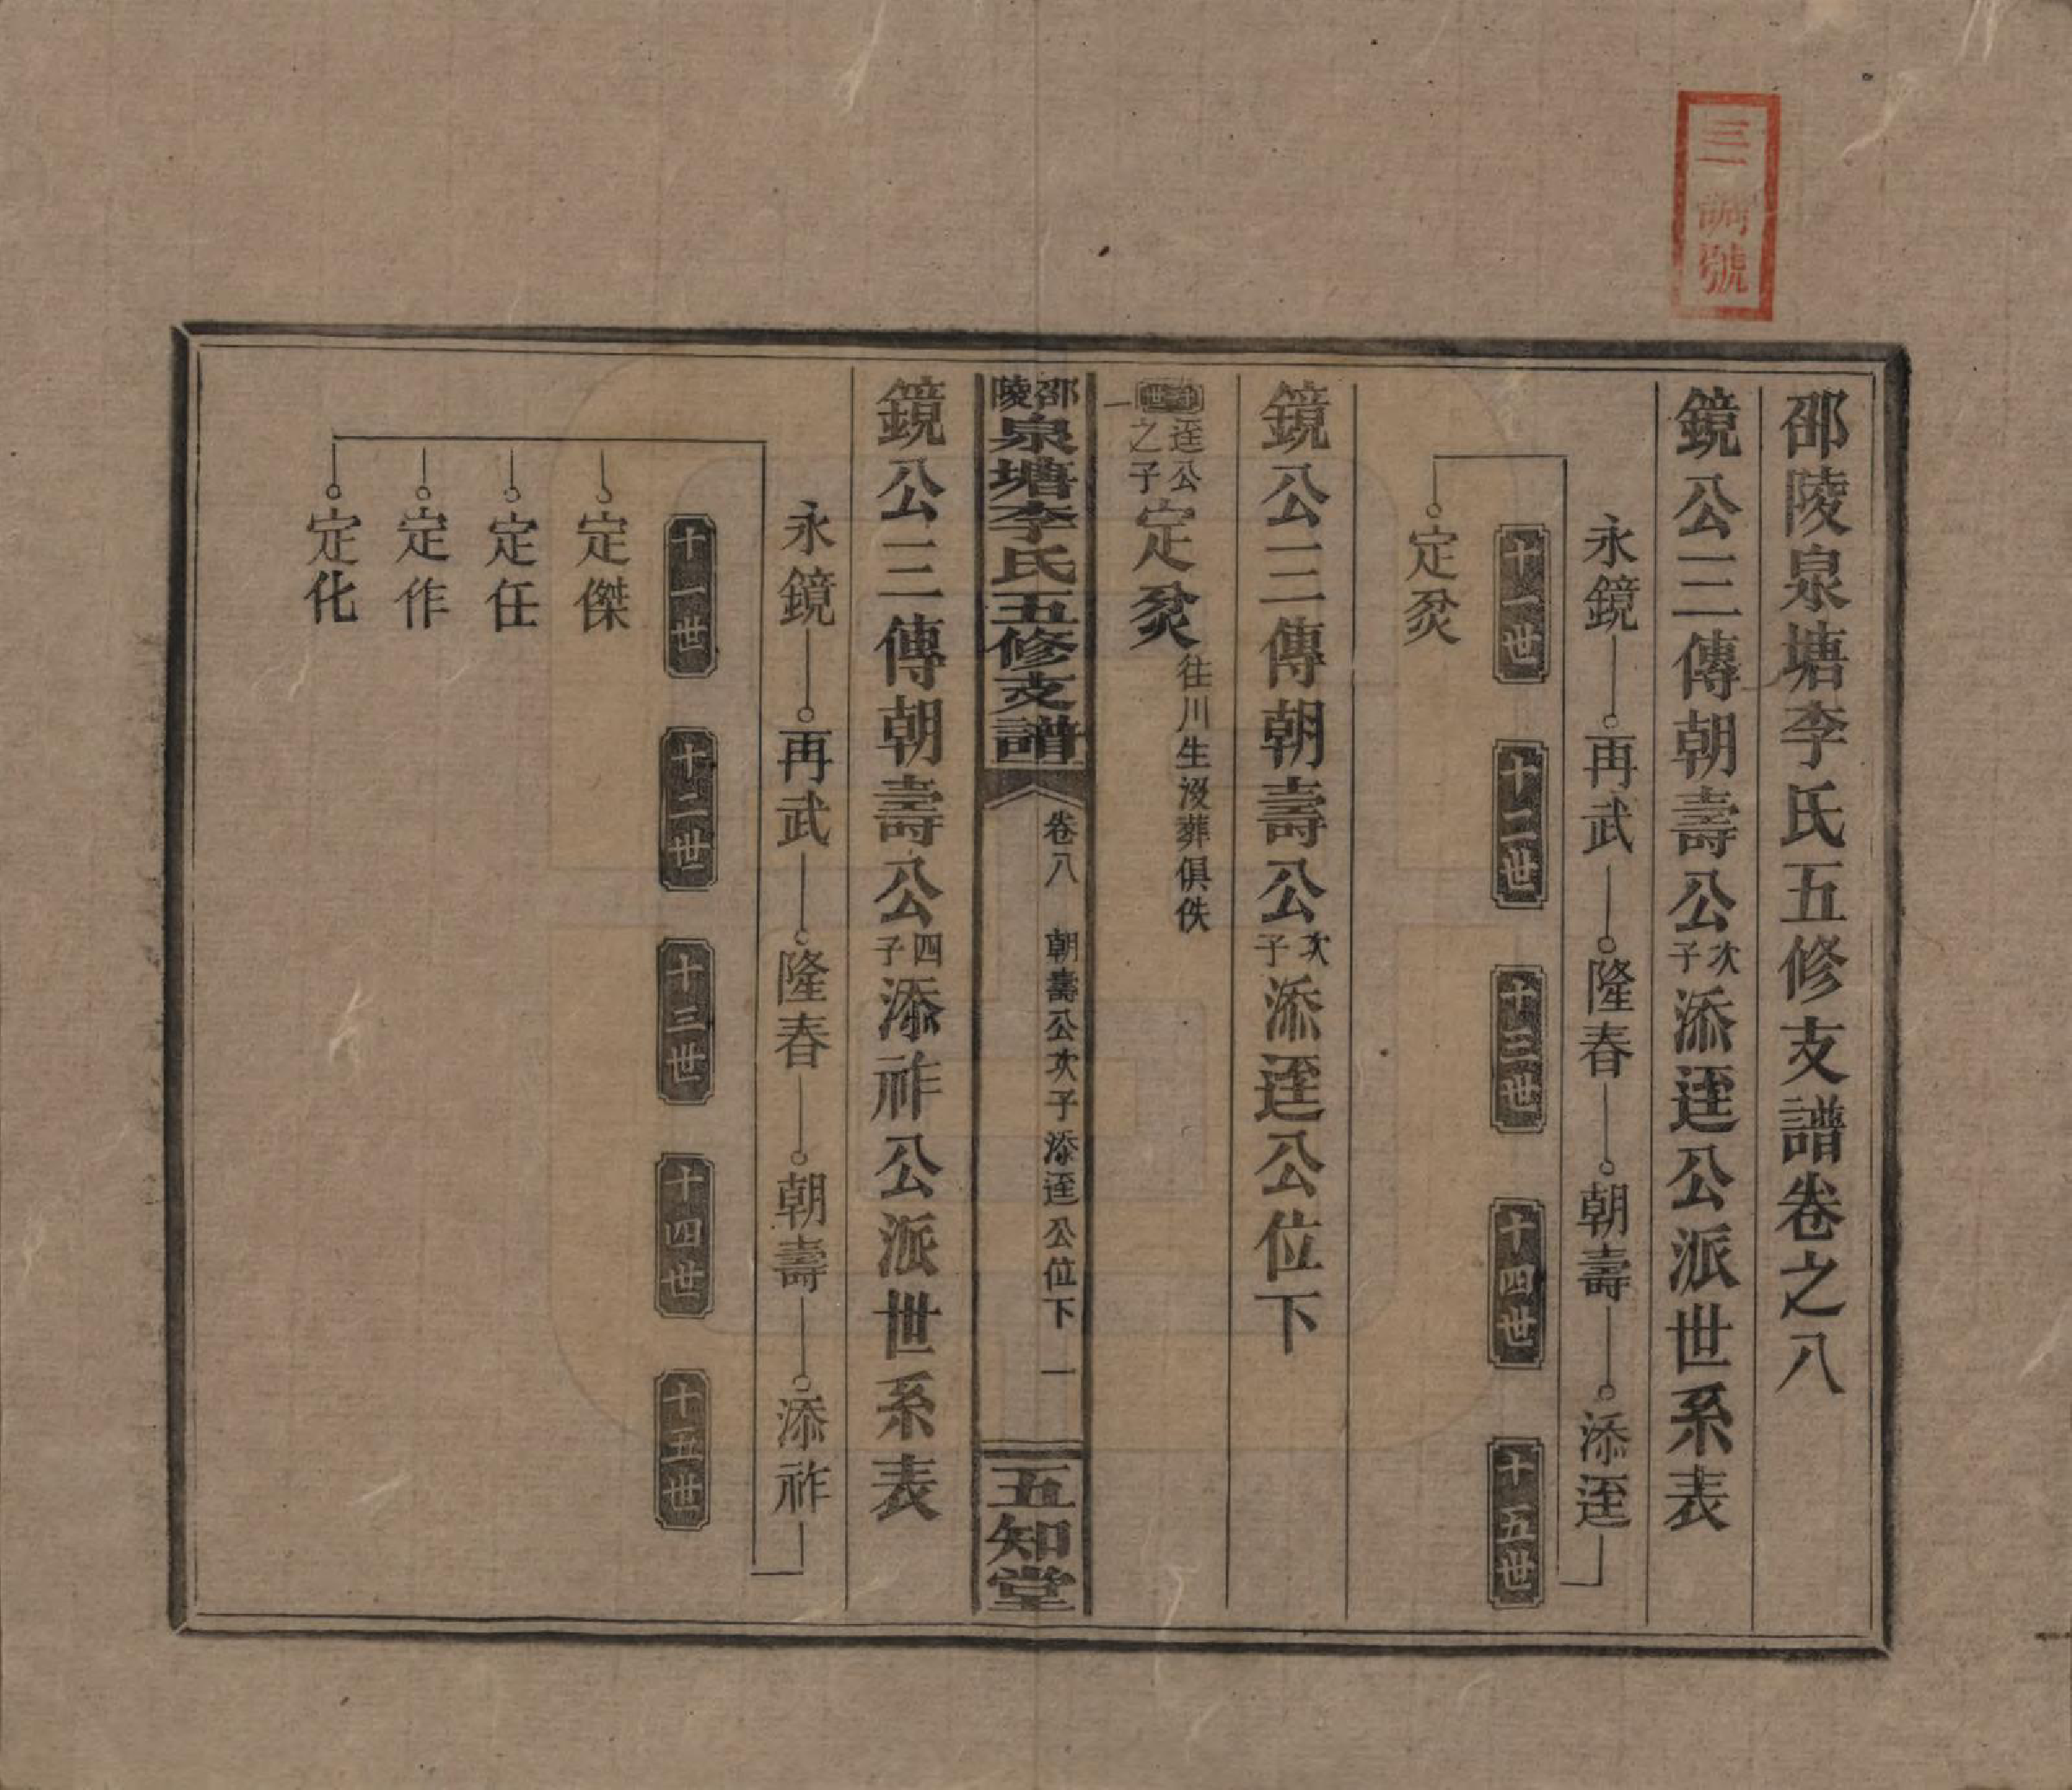 邵陵泉塘李氏五修支譜卷之八
鏡公三傳朝壽公次子添逕公派世系表
永鏡 再武 隆春 朝壽 添逕
十一世 十二世 十三世 十四世 十五世
定烎
鏡公三傳朝壽公次子添逕公位下
世 逕公之子 定烎 往川生沒葬俱佚
邵陵泉塘李氏五修支譜 卷八 朝壽公次子添逕公位下 一 五知堂
鏡公三傳朝壽公四子添祚公派世系表
永鏡 再武 隆春 朝壽 添祚
十一世 十二世 十三世 十四世 十五世
定傑
定任
定作
定化
號